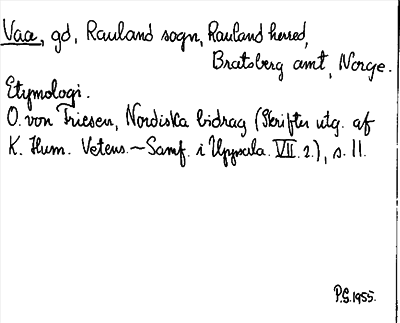 Vaa, gd, Rauland sogn, Rauland herred,
Bratsberg amt, Norge.
Etymologi.
O. von Friesen, Nordiska bidrag (Skrifter utg. af
K. Hum. Vetens.~Samf. i Uppsala. VII. 2.), s. 11.
P.S. 1955.